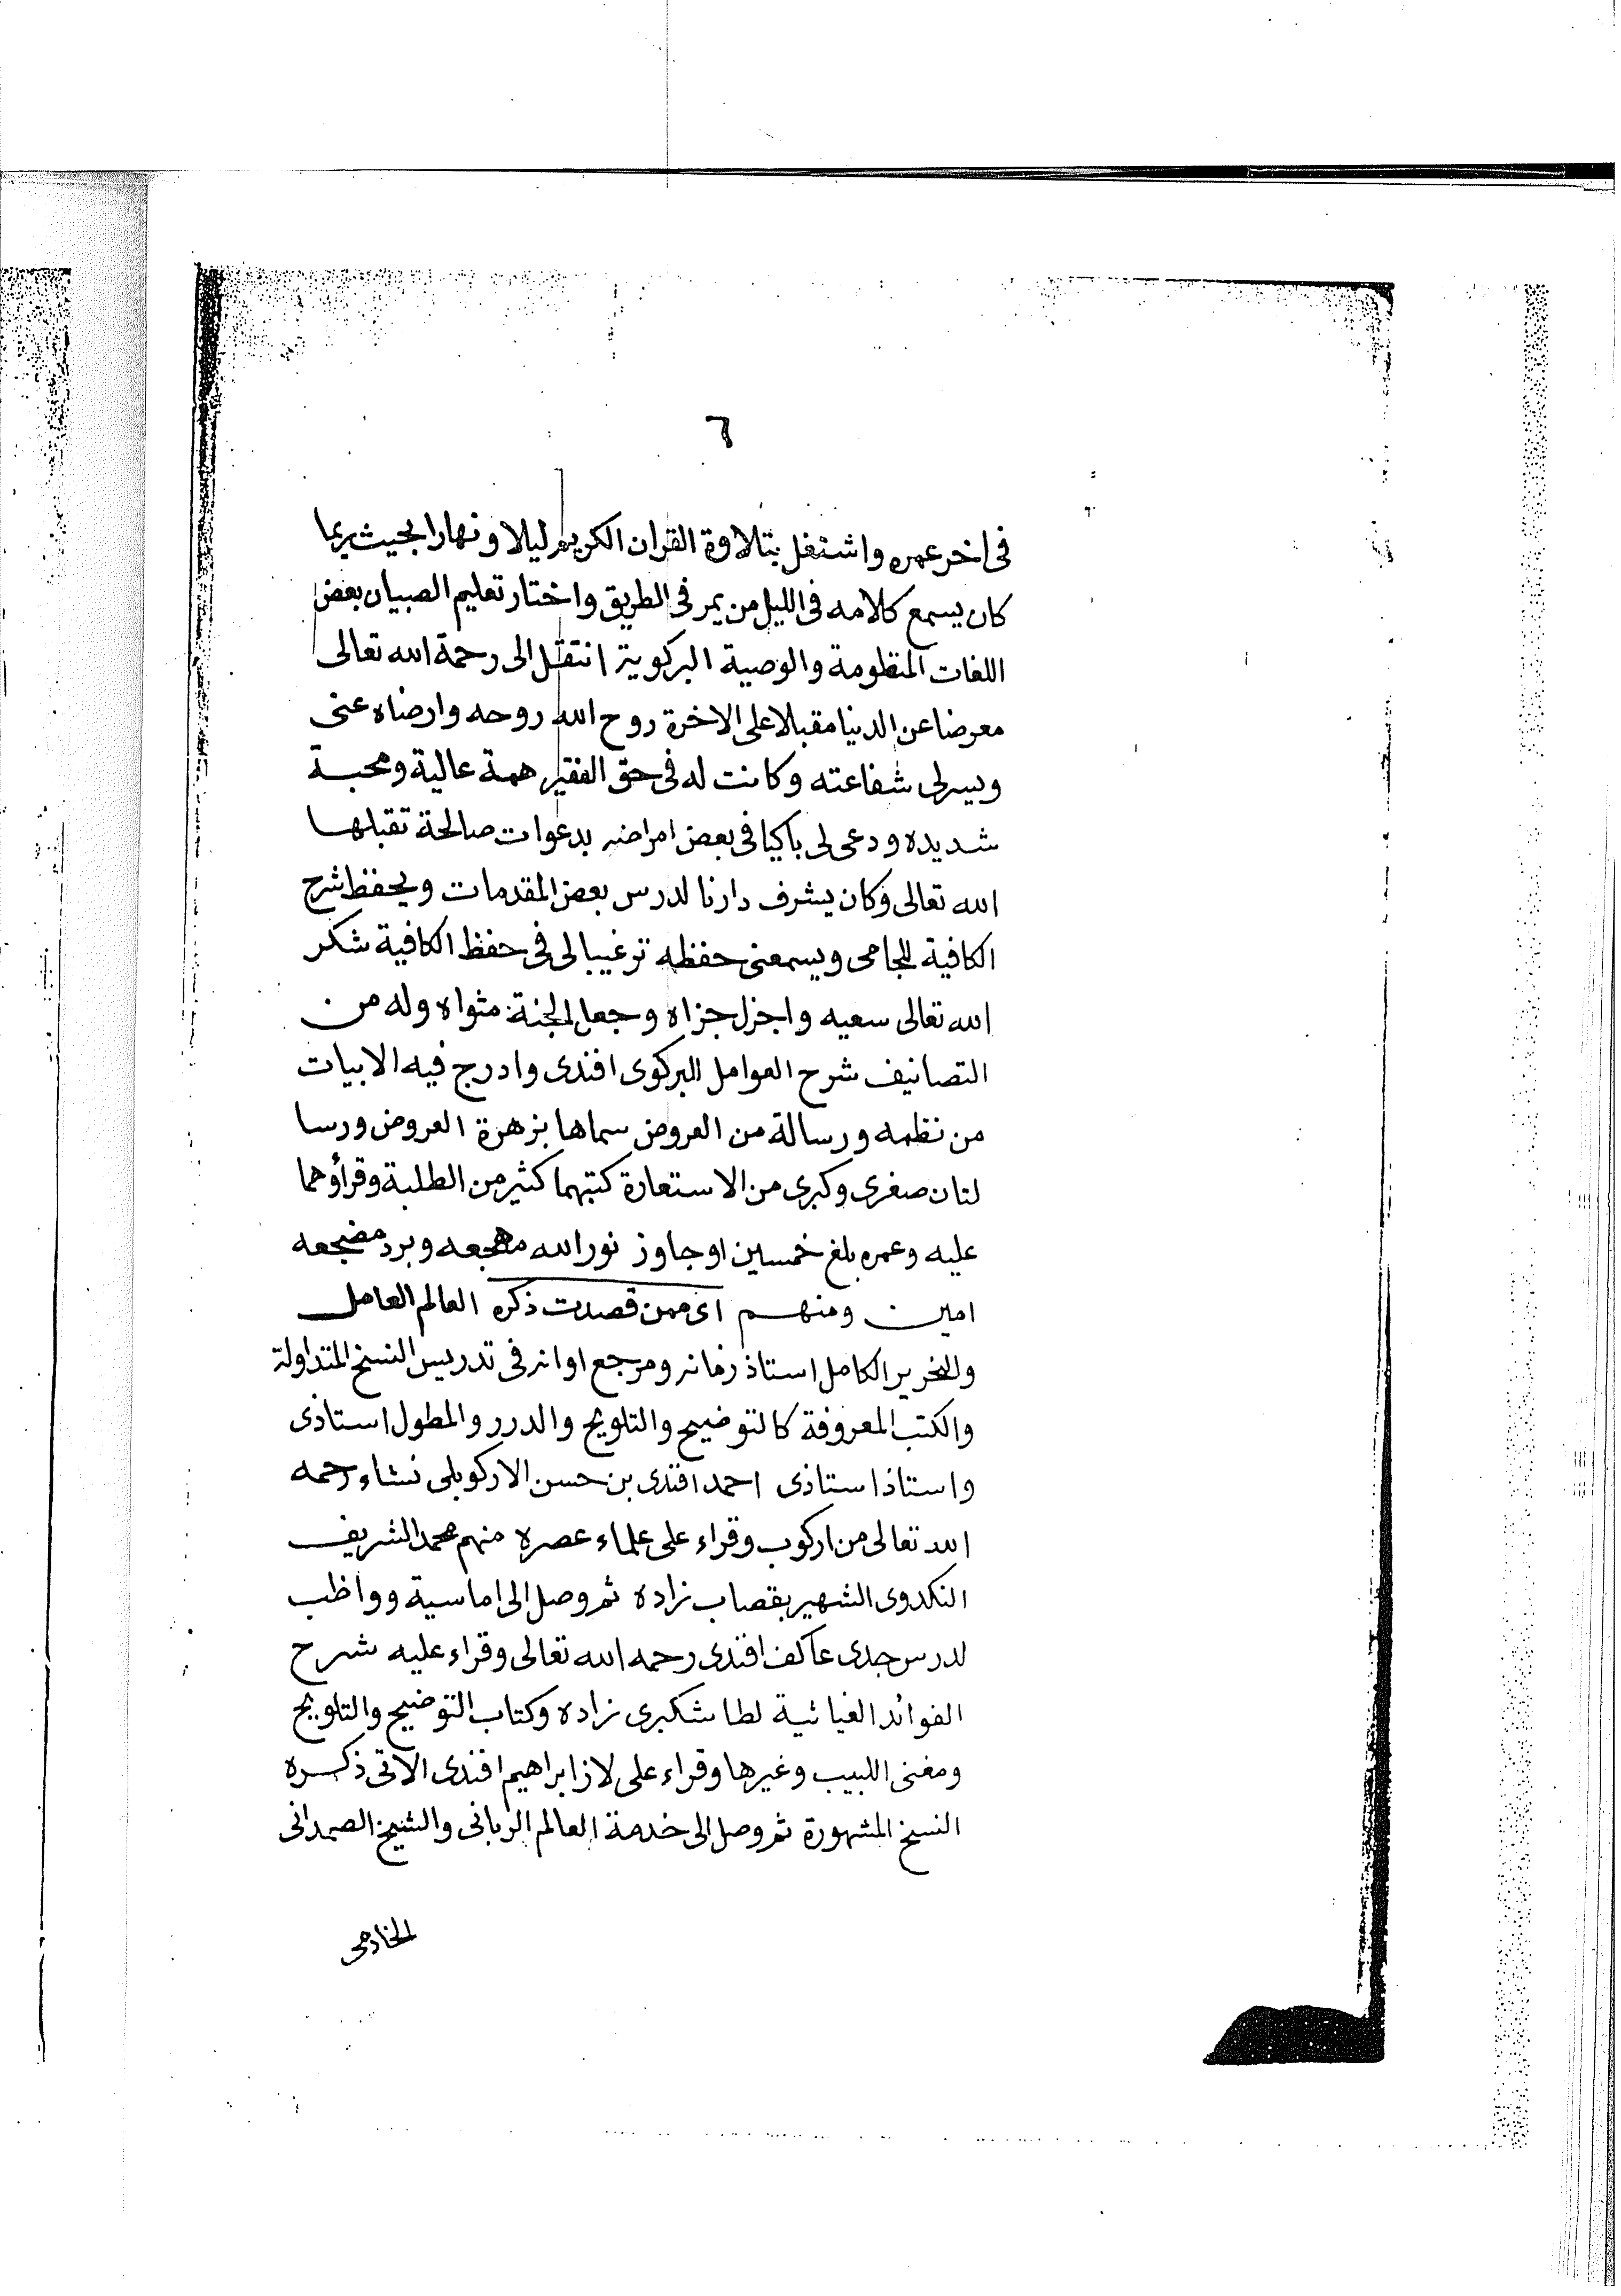 ٦
فى اخر عمره واشتغل بتلاوة القران الكريم ليلا ونهارا بحيث ربما
كان يسمع كلامه فى الليل من يمر فى الطريق واختار تعليم الصبيان بعض
اللغات المنظومة والوصية البركوية انتقل الى رحمة الله تعالى
معرضا عن الدنيا مقبلا على الاخرة روح الله روحه وارضاه عنى
ويسر لى شفاعته وكانت له فى حق الفقير همة عالية ومحبة
شديده ودعى لى باكيا فى بعض امراضه بدعوات صالحة تقبلها
الله تعالى وكان يشرف دارنا لدرس بعض المقدمات ويحفظ شرح
الكافية للجامى ويسمعنى حفظه ترغيبا لى فى حفظ الكافية شكر
الله تعالى سعيه واجزل جزاه وجعل الجنة مثواه وله من
التصانيف شرح العوامل البركوى افندى وادرج فيه الابيات
من نظمه ورسالة من العروض سماها بزهرة العروض ورسا
لتان صغرى وكبرى من الاستعارة كتبهما كثير من الطلبة وقرأوهما
عليه وعمره بلغ خمسين او جاوز نور الله مهجعه وبرد مضجعه
امين ومنهم اى ممن قصدت ذكره العالم العامل
والنحرير الكامل استاذ زمانه ومرجع اوانه فى تدريس النسخ المتداولة
والكتب المعروفة كالتوضيح والتلويح والدرر والمطول استاذى
واستاذ استاذى احمد افندى بن حسن الاركوبلى نشاء رحمه
الله تعالى من اركوب وقراء على علماء عصره منهم محمد الشريف
النكدوى الشهير بقصاب زاده ثم وصل الى اماسية وواظب
لدرس جدى عاكف افندى رحمه الله تعالى وقراء عليه شرح
الفوائد الغيائية لطاشكبرى زاده وكتاب التوضيح والتلويح
ومغنى اللبيب وغيرها وقراء على لاز ابراهيم افندى الاتى ذكره
النسخ المشهورة ثم وصل الى خدمة العالم الربانى والشيخ الصمدانى
الخادمى